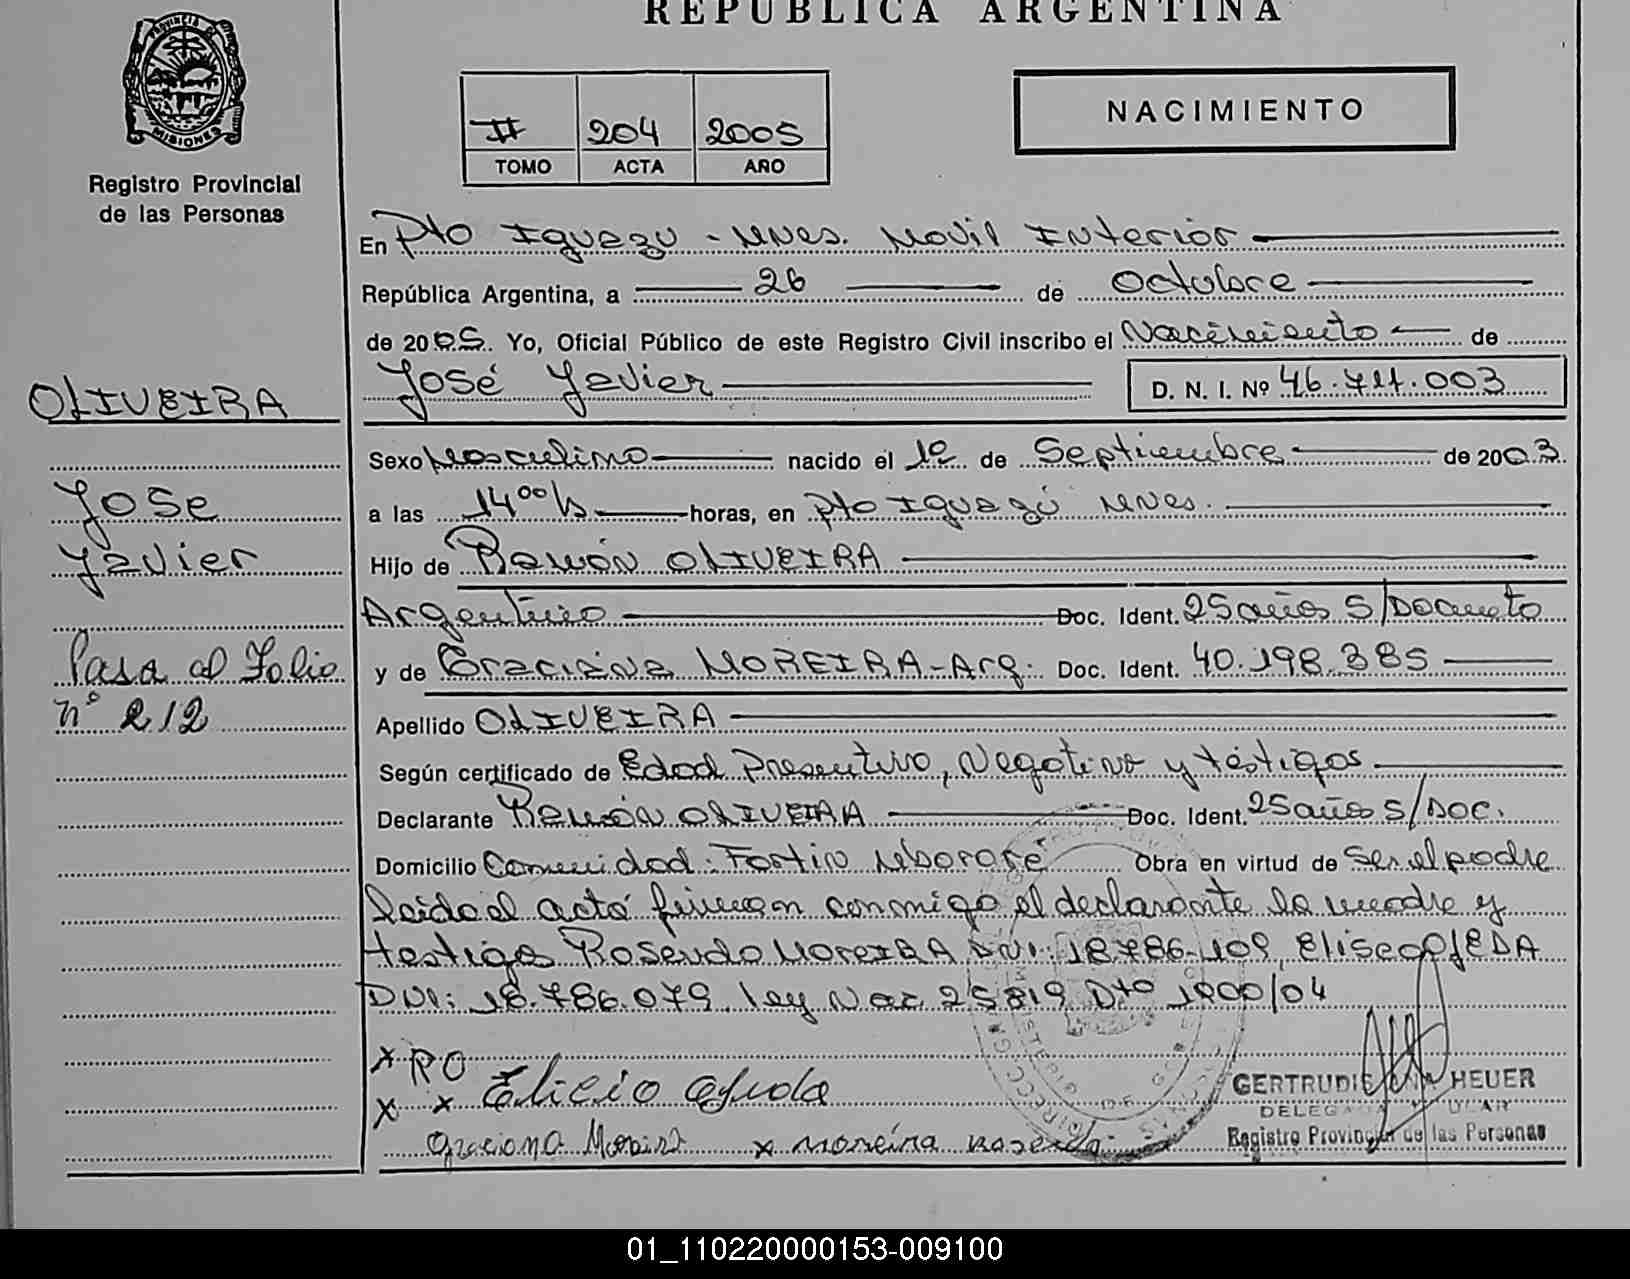 REPUBLICA ARGENTINA
PROVINCIA DE MISIONES
Registro Provincial
de las Personas
II 204 2005
TOMO ACTA AÑO
NACIMIENTO
En Pto Iguazu - Mnes. Movil Interior
República Argentina, a 26 de Octubre
de 2005. Yo, Oficial Público de este Registro Civil inscribo el Nacimiento de
José Javier D. N. I. Nº 46.711.003
OLIVEIRA
Jose
Javier
Pasa al Folio
nº 212
Sexo Masculino nacido el 12 de Septiembre de 2003.
a las 14ºº hs horas, en Pto Iguazú Mnes.
Hijo de Ramón OLIVEIRA
Argentino Doc. Ident. 25 años S/Docuneto
y de Graciana MOREIRA - Arg. Doc. Ident. 40.198.385
Apellido OLIVEIRA
Según certificado de Edad Presuntivo, Negativo y testigos
Declarante Ramón OLIVEIRA Doc. Ident. 25 años S/DOC.
Domicilio Comunidad: Fortin Mbororé Obra en virtud de ser el padre
leido el acta firman conmigo el declarante la madre y
testigos Rosendo MOREIRA DNI: 18.786.109, Eliseo OJEDA
DNI: 18.786.079. Ley Nac 25819 Dto 1000/04
x RO
x x Elicio Ojeda
Graciana Moreira x Moreira Rosendo
GERTRUDIS HEUER
DELEGADA TITULAR
Registro Provincial de las Personas
01_110220000153-009100